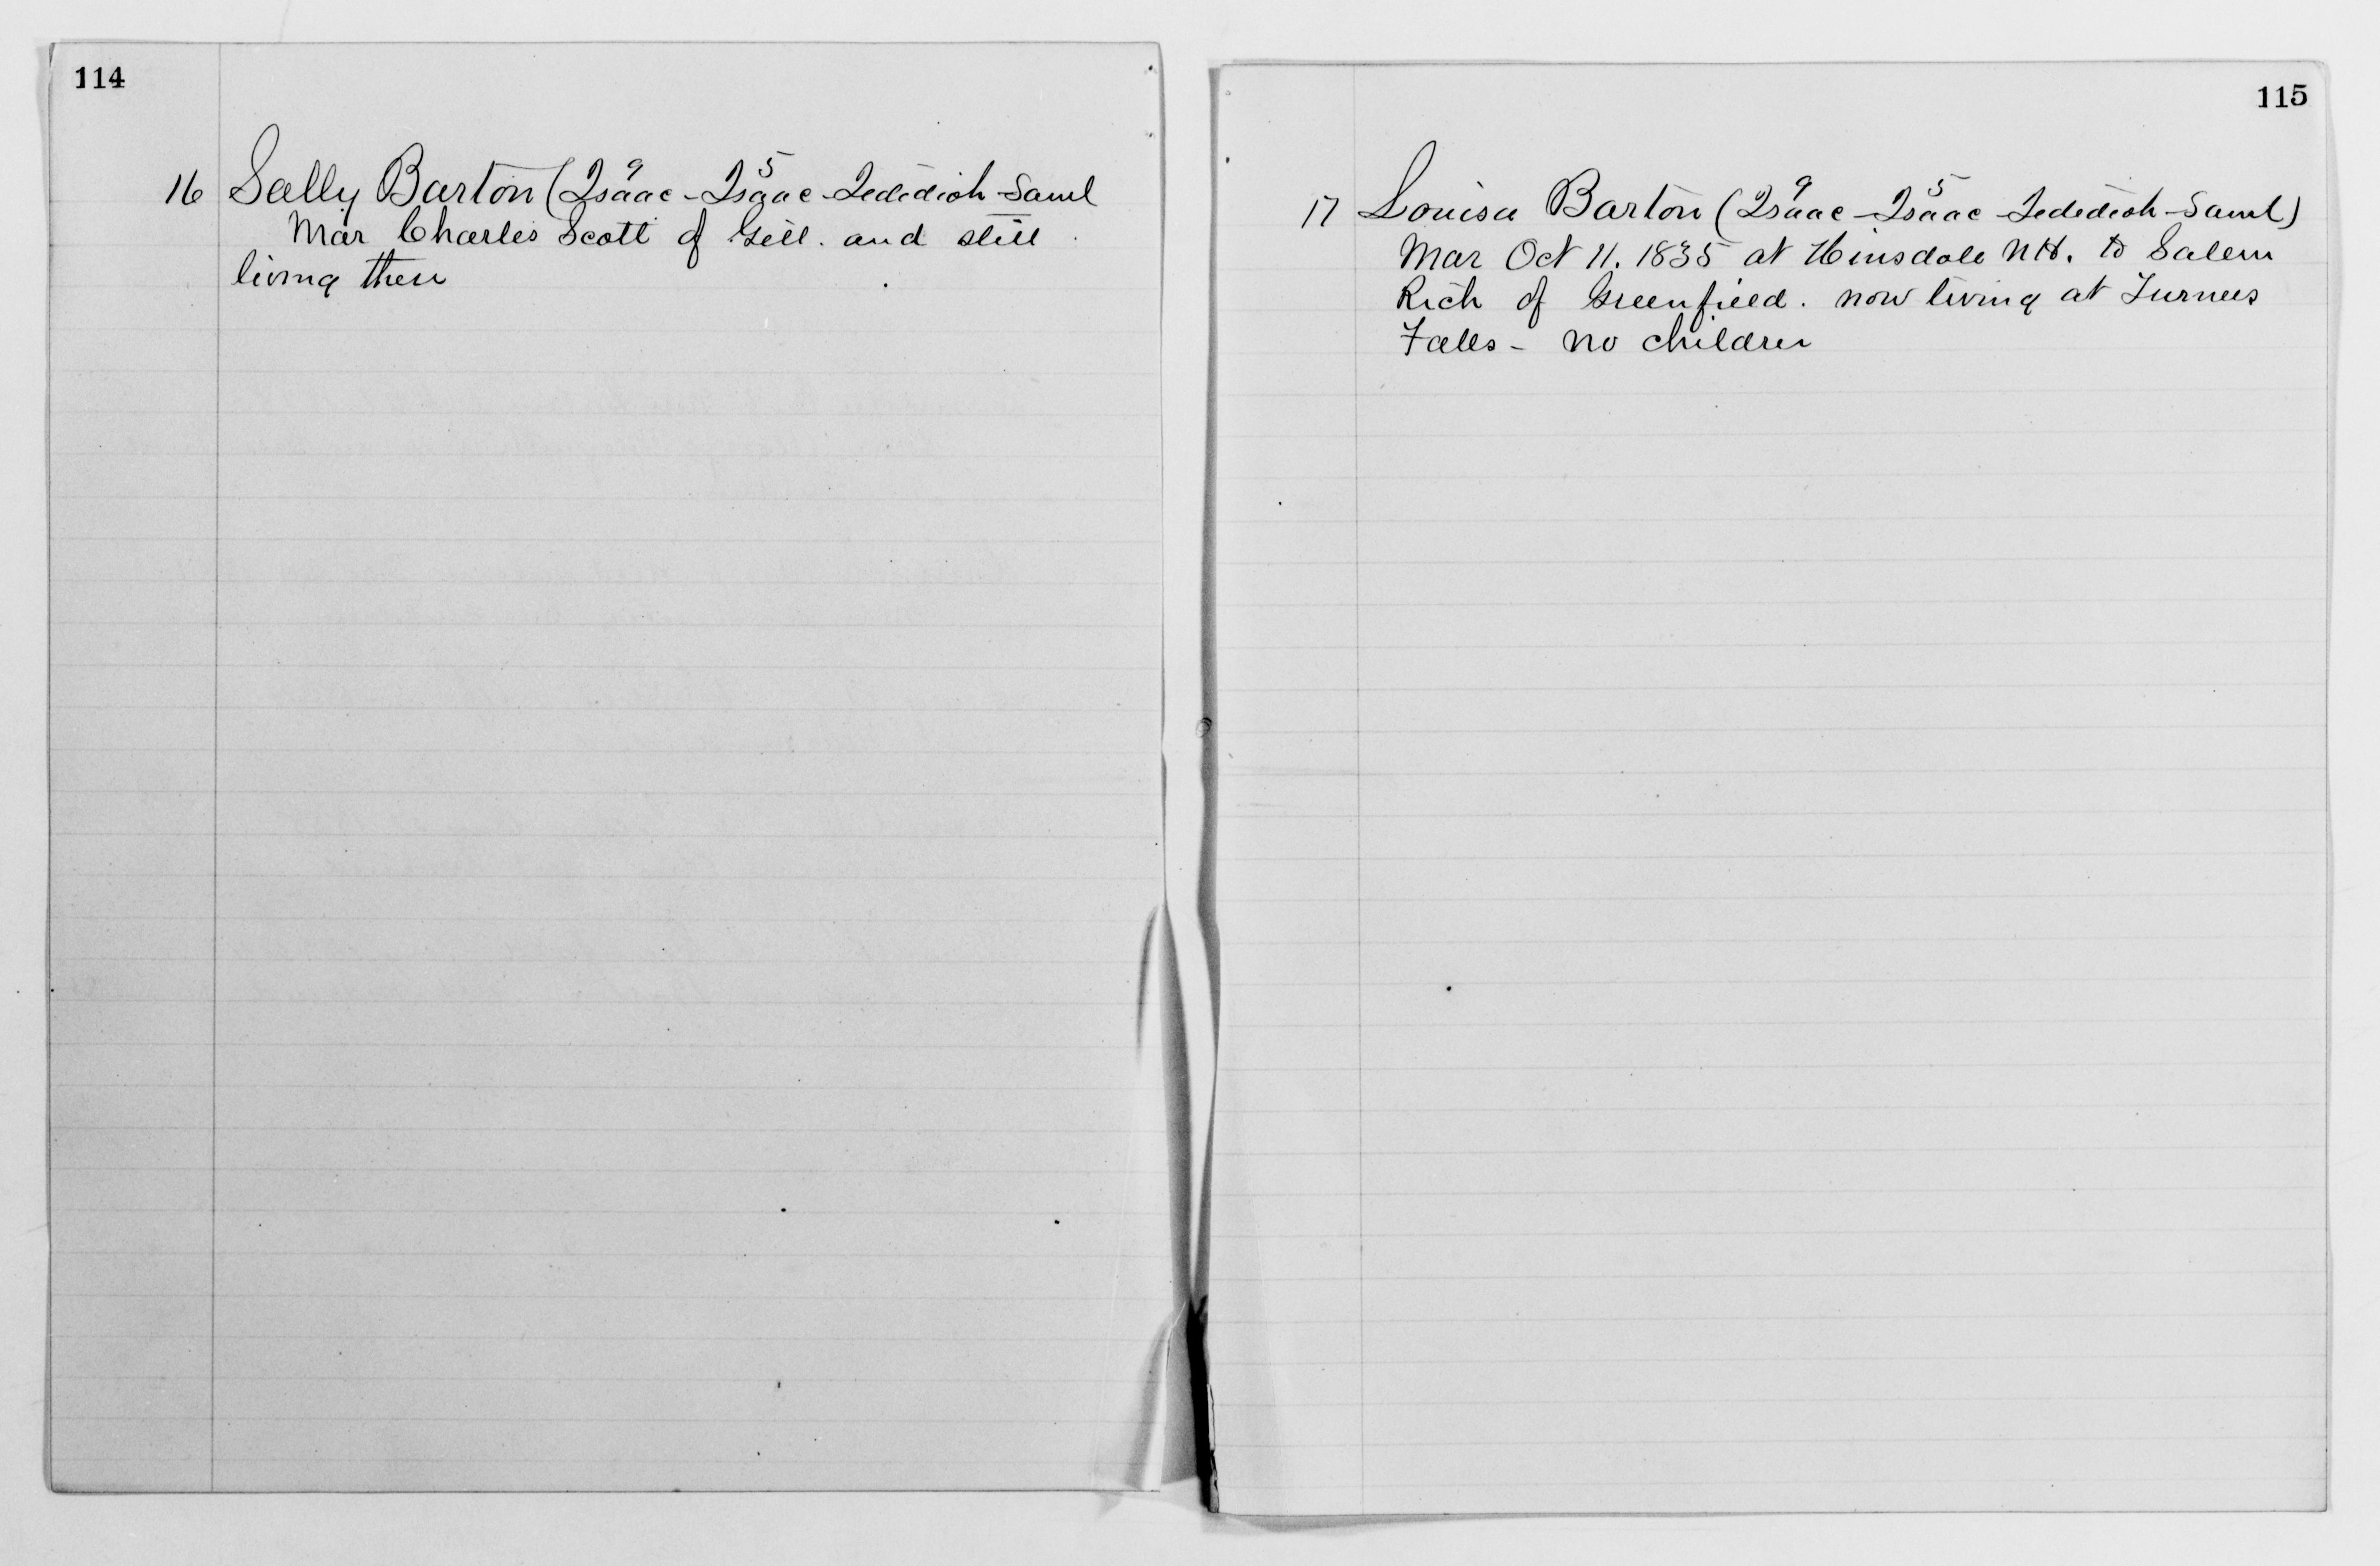 114
16 Sally Barton (Isaac⁹ - Isaac⁵ - Jedediah - Saml
Mar Charles Scott of Gill. and still
living there
115
17 Louisa Barton (Isaac⁹ - Isaac⁵ - Jedediah - Saml)
Mar Oct 11. 1835 at Hinsdale NH. to Salem
Rich of Greenfield. now living at Turners
Falls - no children